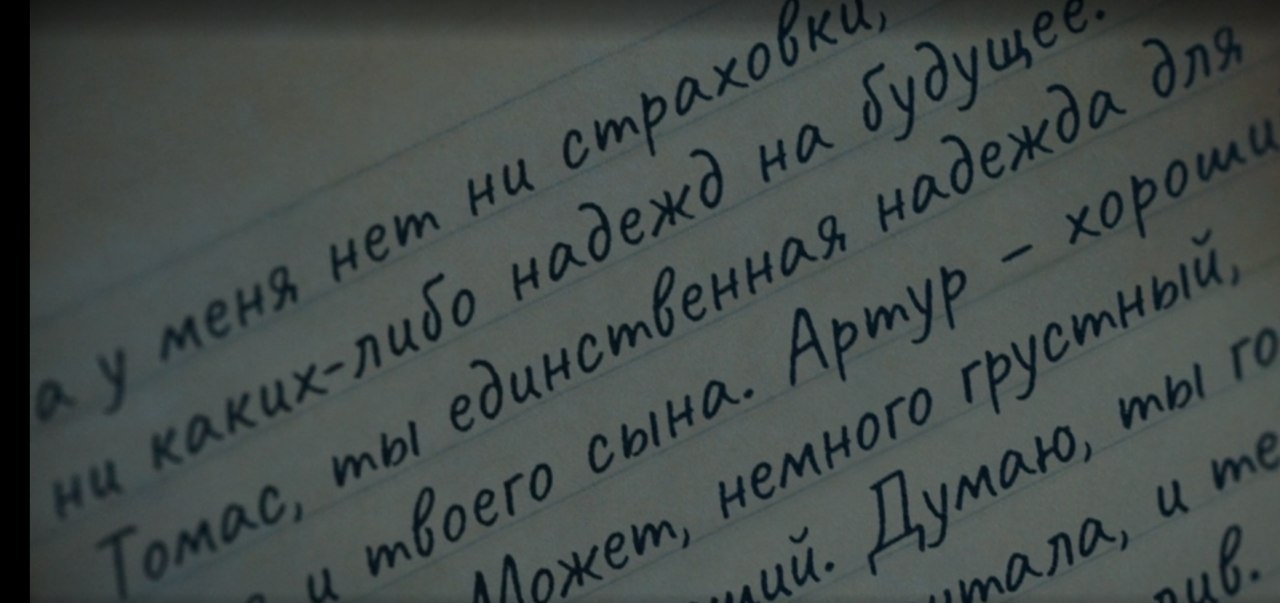 а у меня нет ни страховки,
ни каких-либо надежд на будущее.
Томас, ты единственная надежда для
и твоего сына. Артур –
Может, немного грустный,
Думаю, ты
и